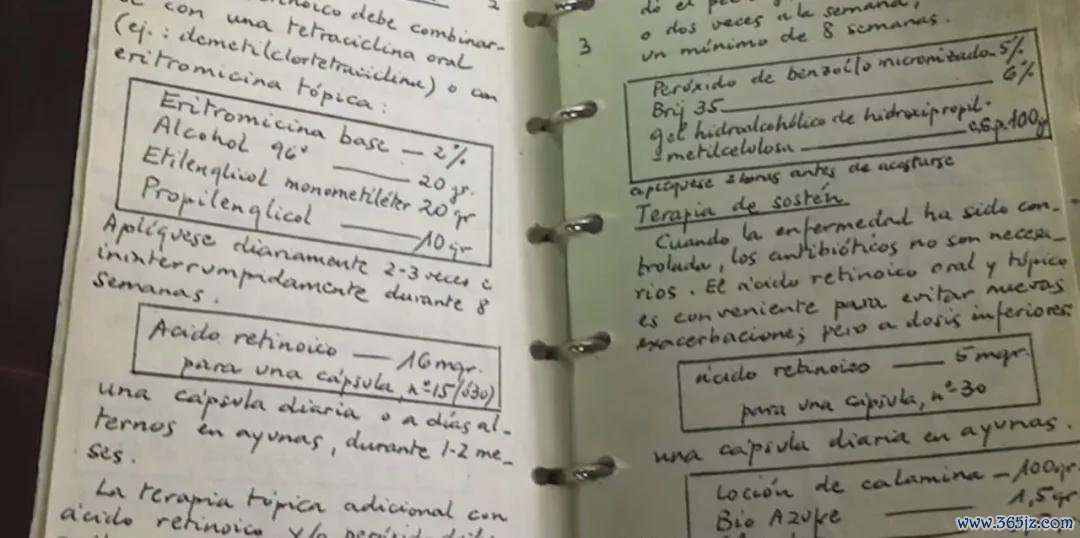 2
debe combinar-
con una tetraciclina oral
(ej.: demetilclortetraciclina) o con
eritromicina tópica:
Eritromicina base — 2%
Alcohol 96° — 20 gr.
Etilenglicol monometiléter 20 gr
Propilenglicol — 10 gr
Aplíquese diariamente 2-3 veces e
ininterrumpidamente durante 8
semanas.
Acido retinoico — 16 mgr.
para una cápsula, nº 15 (ó 30)
una cápsula diaria o a días al-
ternos en ayunas, durante 1-2 me-
ses.
La terapia tópica adicional con
ácido retinoico y/o
3
o dos veces a la semana,
un mínimo de 8 semanas.
Peróxido de benzoilo micronizado 5%
Brij 35 — 6%
gel hidroalcohólico de hidroxipropil-
metilcelulosa — c.s.p. 100 g
aplíquese 2 horas antes de acostarse
Terapia de sostén
Cuando la enfermedad ha sido con-
trolada, los antibióticos no son necesa-
rios. El ácido retinoico oral y tópico
es conveniente para evitar nuevas
exacerbaciones; pero a dosis inferiores:
ácido retinoico — 5 mgr.
para una cápsula, nº 30
una cápsula diaria en ayunas.
Loción de calamina — 100 gr.
Bio Azufre — 1,5 gr
www.365jz.com